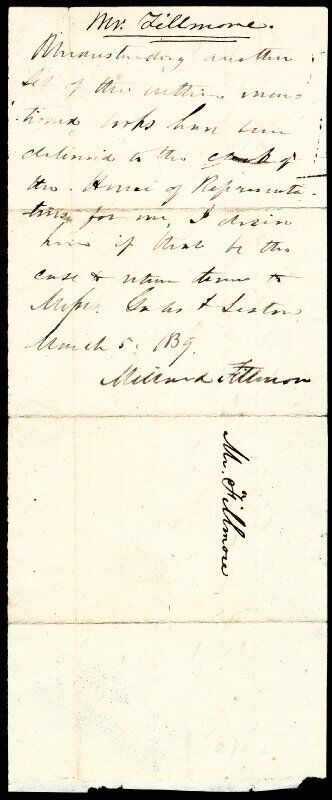 Mr. Fillmore.
Understanding another
set of the within men-
tioned books have been
delivered to the clerk of
the House of Representa-
tives for me, I desire
him if that be the
case to return them to
Messrs. Gales & Seaton
March 5. 1839.
Millard Fillmore
Mr. Fillmore